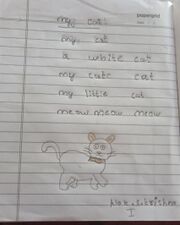 papergrid
my cat!
my cat
a white cat
my cute cat
my little cat
meow meow meow
I